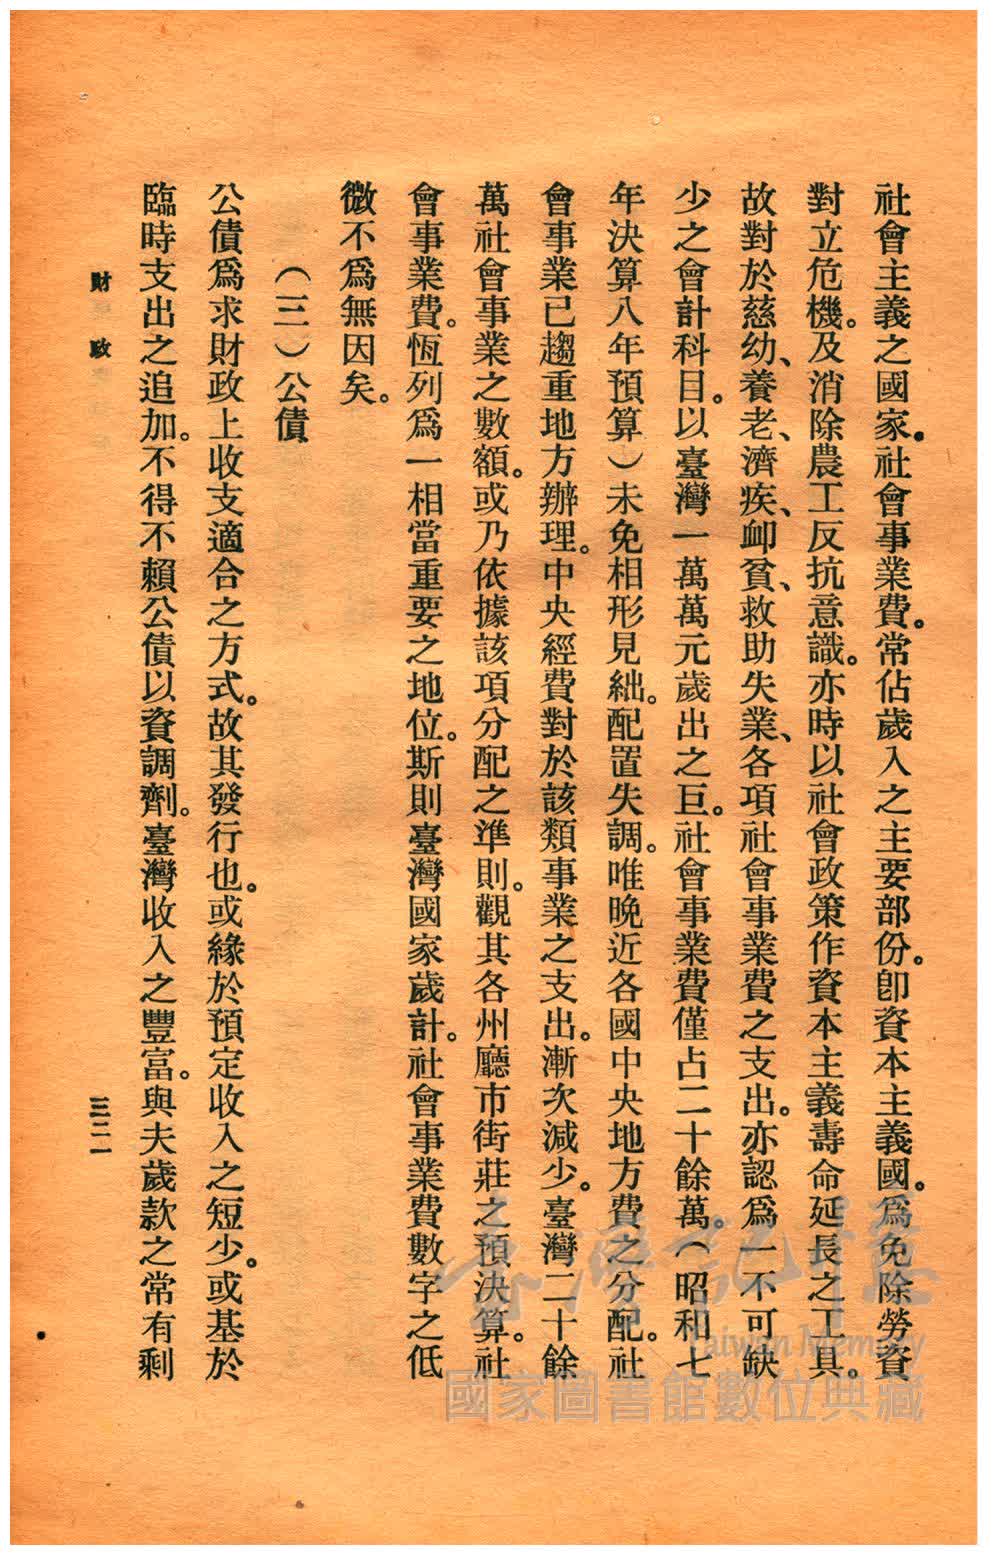 社會主義之國家。社會事業費。常佔歲入之主要部份。卽資本主義國。爲免除勞資
對立危機。及消除農工反抗意識。亦時以社會政策作資本主義壽命延長之工具。
故對於慈幼、養老、濟疾、卹貧、救助失業、各項社會事業費之支出。亦認爲一不可缺
少之會計科目。以臺灣一萬萬元歲出之巨。社會事業費僅占二十餘萬。(昭和七
年決算八年預算)未免相形見絀。配置失調。唯晚近各國中央地方費之分配。社
會事業已趨重地方辦理。中央經費對於該類事業之支出。漸次減少。臺灣二十餘
萬社會事業之數額。或乃依據該項分配之準則。觀其各州廳市街莊之預決算。社
會事業費。恆列爲一相當重要之地位。斯則臺灣國家歲計。社會事業費數字之低
微不爲無因矣。
(三)公債
公債爲求財政上收支適合之方式。故其發行也。或緣於預定收入之短少。或基於
臨時支出之追加。不得不賴公債以資調劑。臺灣收入之豐富。與夫歲款之常有剩
財政
三二一
臺灣記憶
Taiwan Memory
國家圖書館數位典藏